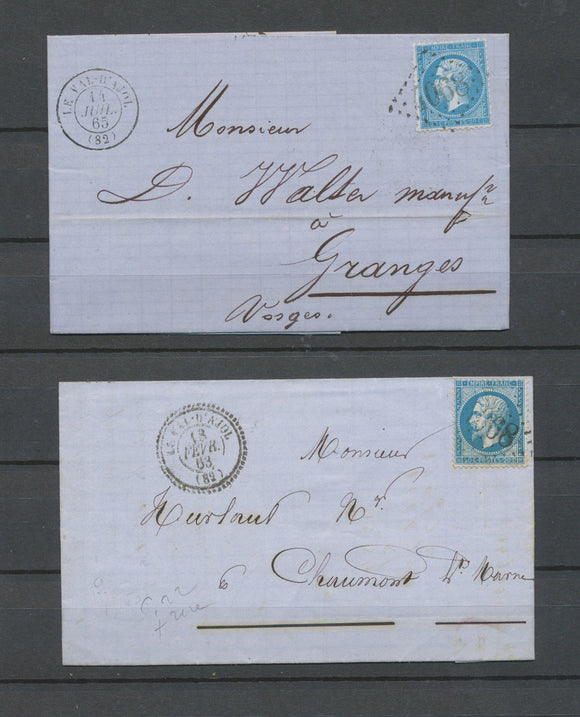 LE VAL-D'AJOL
11
JUIL.
65
(82)
EMPIRE FRANC
Monsieur
D. Walter manuf.re
à
Granges
Vosges.
LE VAL-D'AJOL
FÉVR.
63
(82)
EMPIRE FRANC
20 C POSTES 20 C
Monsieur
Hurtaut Nr.
à Chaumont Hte Marne